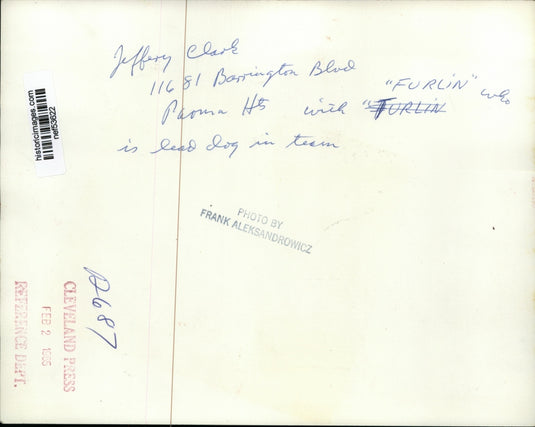 Jeffery Clark
11681 Barrington Blvd
"FURLIN" who
Parma Hts with "FURLIN
is lead dog in team
historicimages.com
PHOTO BY
FRANK ALEKSANDROWICZ
CLEVELAND PRESS
FEB 2
REFERENCE DEPT.